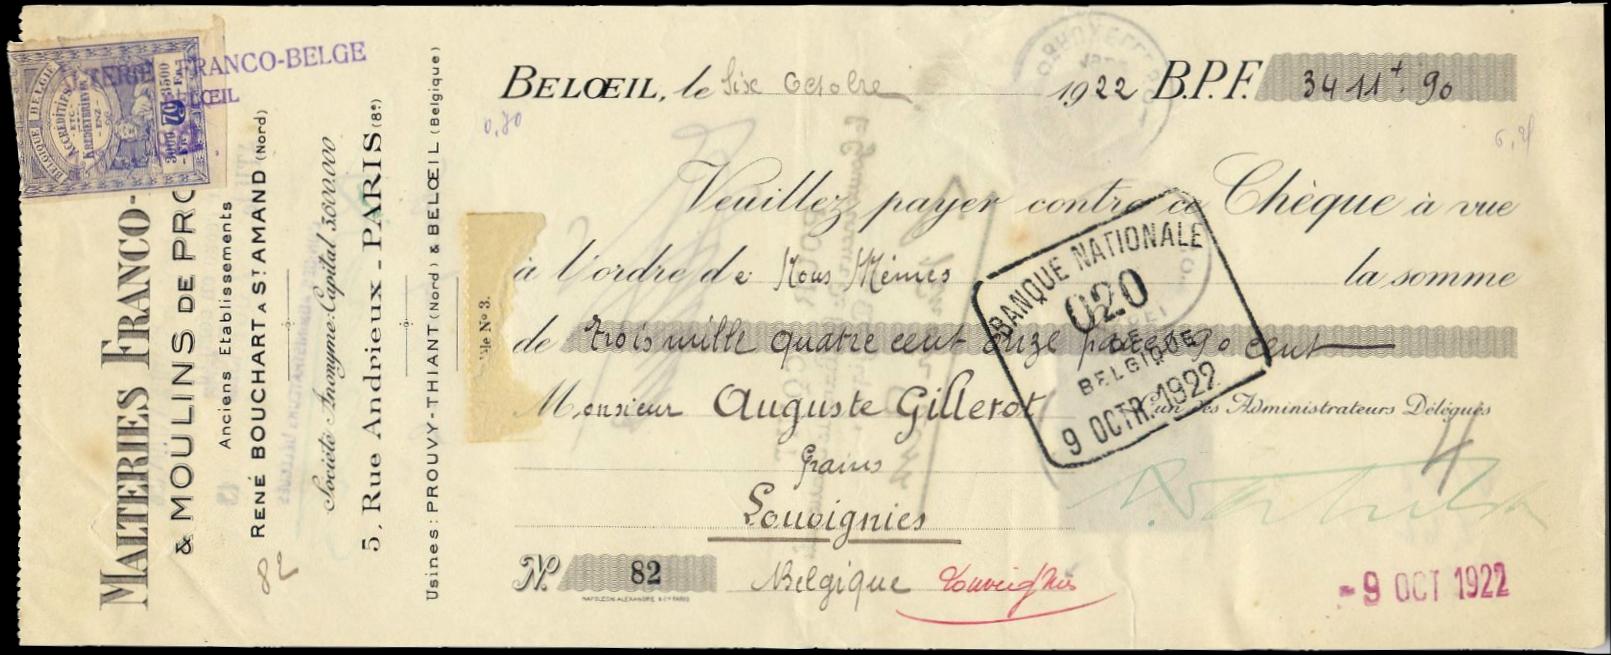 MALTERIES FRANCO-
& MOULINS DE PRO
Anciens Etablissements
RENÉ BOUCHART A ST AMAND (Nord)
Société Anonyme: Capital 3.000.000
5, Rue Andrieux - PARIS (8e)
Usines: PROUVY-THIANT (Nord) & BELŒIL (Belgique)
82
FRANCO-BELGE
BELGIQUE BELGIE
ACCRÉDITIFS
ETC.
KREDIETBRIEVEN
ENZ.
BELŒIL, le Six Octobre 1922 B.P.F. 3411+.90
0,70
Veuillez payer contre ce Chèque à vue
à l'ordre de Nous Mêmes la somme
de trois mille quatre cent onze francs 90 cent
Monsieur Auguste Gillerot un des Administrateurs Délégués
Grains
Louvignies
No 82 Belgique Louvignies
NAPOLÉON ALEXANDRE & Cie PARIS
BANQUE NATIONALE
020
DE
BELGIQUE
9 OCTR. 1922
4
-9 OCT 1922